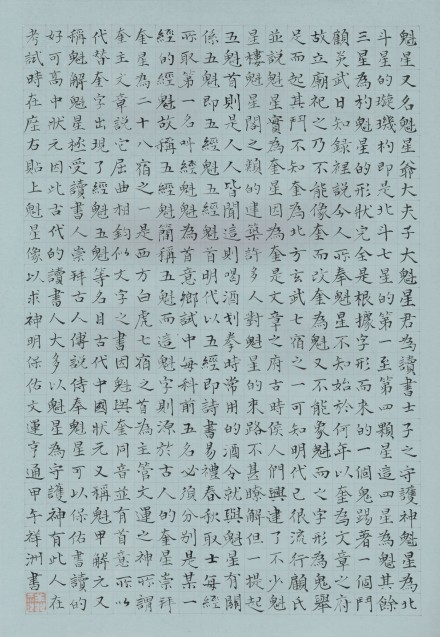 魁星又名魁星爺大夫子大魁星君為讀書士子之守護神魁星為北
斗星的璇璣杓即是北斗七星的第一至第四顆星這四星為魁其餘
三星為杓魁星的形狀完全是根據字形而來的一個鬼踢著一個鬥
顧炎武日知錄經說今人所奉魁星不知始於何年以奎為文章之府
故立廟祀之乃不能像奎而改奎為魁又不能象魁而之字形為鬼舉
足而起其鬥不知奎為北方玄武七宿之一可知明代已很流行顧氏
並說魁星實為奎星因奎星是文章之府古時候人們興建了不少魁
星樓魁星閣之類的建築許多人對魁星的來路不甚瞭解但一提起
五魁首則是人人皆聞這則喝酒划拳時常用的酒令就與魁星有關
係五魁即五經魁五經魁首明代以五經即詩書易禮春秋取士每經
所取第一名叫經魁魁為首意鄉試中每科前五名必須分別是某一
經的經魁故稱五經魁簡稱五魁而這魁字則源於古人的奎星崇拜
奎星為二十八宿之一是西方白虎七宿之首為主管文運之神所謂
奎主文章說它屈曲相鉤似文字之書因魁與奎同音並有首意所以
代替奎字出現了經魁五魁等名目古代中國狀元又稱魁甲解元又
稱魁解魁星極受讀書人崇拜古人傳說侍奉魁星可以保佑書讀的
好可高中狀元因此古代的讀書人大多以魁星為守護神有此人在
考試時在座右貼上魁星像以求神明保佑文運亨通甲午祥洲書